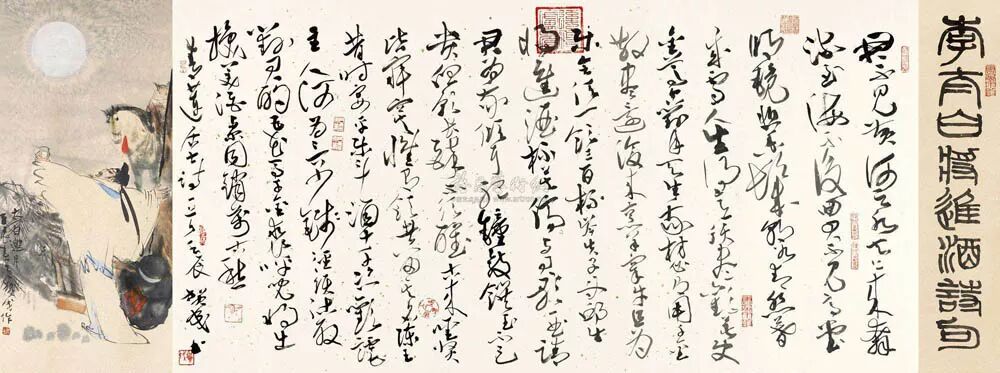 李太白將進酒詩句
君不見黃河之水天上來奔
流到海不復回君不見高堂
明鏡悲白髮朝如青絲暮
成雪人生得意須盡歡莫使
金尊空對月天生我材必有用千金
散盡還復來烹羊宰牛且為
樂會須一飲三百杯岑夫子丹邱生
將進酒杯莫停與君歌一曲請
君為我傾耳聽鐘鼓饌玉不足
貴但願長醉不復醒古來聖賢
皆寂寞惟有飲者留其名陳王
昔時宴平樂斗酒十千恣歡謔
主人何為言少錢徑須沽取
對君酌五花馬千金裘呼兒將出
換美酒與爾同銷萬古愁